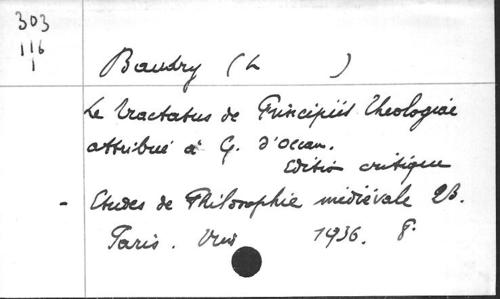 303
116
1
Baudry (L )
Le Tractatus de Principiis Theologiae
attribué à G. d'Occam.
Edition critique
- Etudes de Philosophie médiévale 23.
Paris. Vrin 1936. 8.